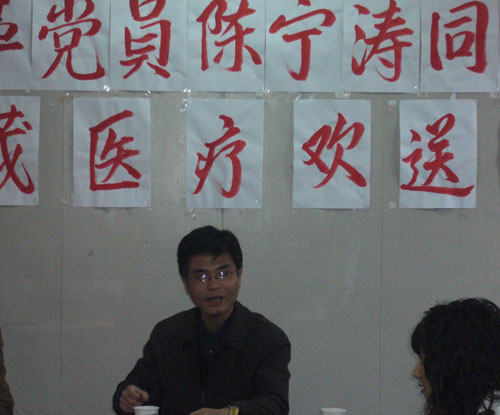 党员陈宁涛同
茂医疗欢送